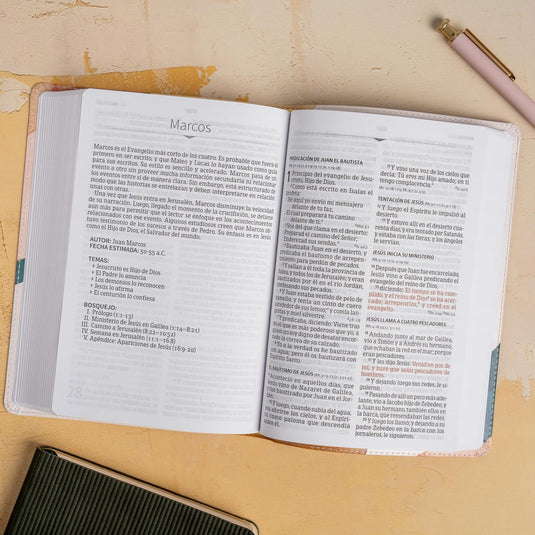 Marcos
Marcos es el Evangelio más corto de los cuatro. Es probable que fuera el
primero en ser escrito, y que Mateo y Lucas lo hayan usado como guía
para sus escritos. Su estilo es sencillo y acelerado. Marcos pasa de un
evento a otro sin proveer mucha información secundaria ni relacionar
los eventos entre sí de manera clara. Sin embargo, está estructurado de
modo que las historias se entrelazan y deben interpretarse en relación
unas con otras.
Una vez que Jesús entra en Jerusalén, Marcos disminuye la velocidad
de su narración. Luego, llegado el momento de la crucifixión, se detiene
aun más para permitir que el lector se enfoque en los acontecimientos
relacionados con ese evento. Algunos estudiosos creen que Marcos ob-
tuvo testimonio de los sucesos a través de Pedro. Su énfasis es en Jesús
como el Hijo de Dios, el Salvador del mundo.
AUTOR: Juan Marcos
FECHA ESTIMADA: 50-55 a.C.
TEMAS:
» Jesucristo es Hijo de Dios
» El Padre lo anuncia
» Los demonios lo reconocen
» Jesús lo afirma
» El centurión lo confiesa
BOSQUEJO:
I. Prólogo (1:1–13)
II. Ministerio de Jesús en Galilea (1:14–8:21)
III. Camino a Jerusalén (8:22–10:52)
IV. Semana en Jerusalén (11:1–16:8)
V. Apéndice: Apariciones de Jesús (16:9-20)
PREDICACIÓN DE JUAN EL BAUTISTA
1 Principio del evangelio de Jesu-
cristo, Hijo de Dios.
Como está escrito en Isaías el
profeta:
He aquí yo envío mi mensajero
delante de tu faz,
El cual preparará tu camino
delante de ti.
Voz del que clama en el desierto:
Preparad el camino del Señor;
Enderezad sus sendas.
Bautizaba Juan en el desierto, y
predicaba el bautismo de arrepen-
timiento para perdón de pecados.
Y salían a él toda la provincia de
Judea, y todos los de Jerusalén; y eran
bautizados por él en el río Jordán,
confesando sus pecados.
Y Juan estaba vestido de pelo de
camello, y tenía un cinto de cuero
alrededor de sus lomos; y comía lan-
gostas y miel silvestre.
Y predicaba, diciendo: Viene tras
mí el que es más poderoso que yo, a
quien no soy digno de desatar encor-
vado la correa de su calzado.
Yo a la verdad os he bautizado
con agua; pero él os bautizará con
Espíritu Santo.
EL BAUTISMO DE JESÚS
Aconteció en aquellos días, que
Jesús vino de Nazaret de Galilea,
y fue bautizado por Juan en el Jor-
dán.
Y luego, cuando subía del agua,
vio abrirse los cielos, y al Espíri-
tu como paloma que descendía
sobre él.
Y vino una voz de los cielos que
decía: Tú eres mi Hijo amado; en ti
tengo complacencia.
TENTACIÓN DE JESÚS
Y luego el Espíritu le impulsó al
desierto.
Y estuvo allí en el desierto cua-
renta días, y era tentado por Satanás,
y estaba con las fieras; y los ángeles
le servían.
JESÚS INICIA SU MINISTERIO
Después que Juan fue encarcelado,
Jesús vino a Galilea predicando el
evangelio del reino de Dios,
diciendo: El tiempo se ha cum-
plido, y el reino de Dios se ha acer-
cado; arrepentíos, y creed en el
evangelio.
JESÚS LLAMA A CUATRO PESCADORES
Andando junto al mar de Galilea,
vio a Simón y a Andrés su hermano,
que echaban la red en el mar; porque
eran pescadores.
Y les dijo Jesús: Venid en pos de
mí, y haré que seáis pescadores de
hombres.
Y dejando luego sus redes, le si-
guieron.
Pasando de allí un poco más ade-
lante, vio a Jacobo hijo de Zebedeo, y
a Juan su hermano, también ellos en
la barca, que remendaban las redes.
Y luego los llamó; y dejando a su
padre Zebedeo en la barca con los
jornaleros, le siguieron.